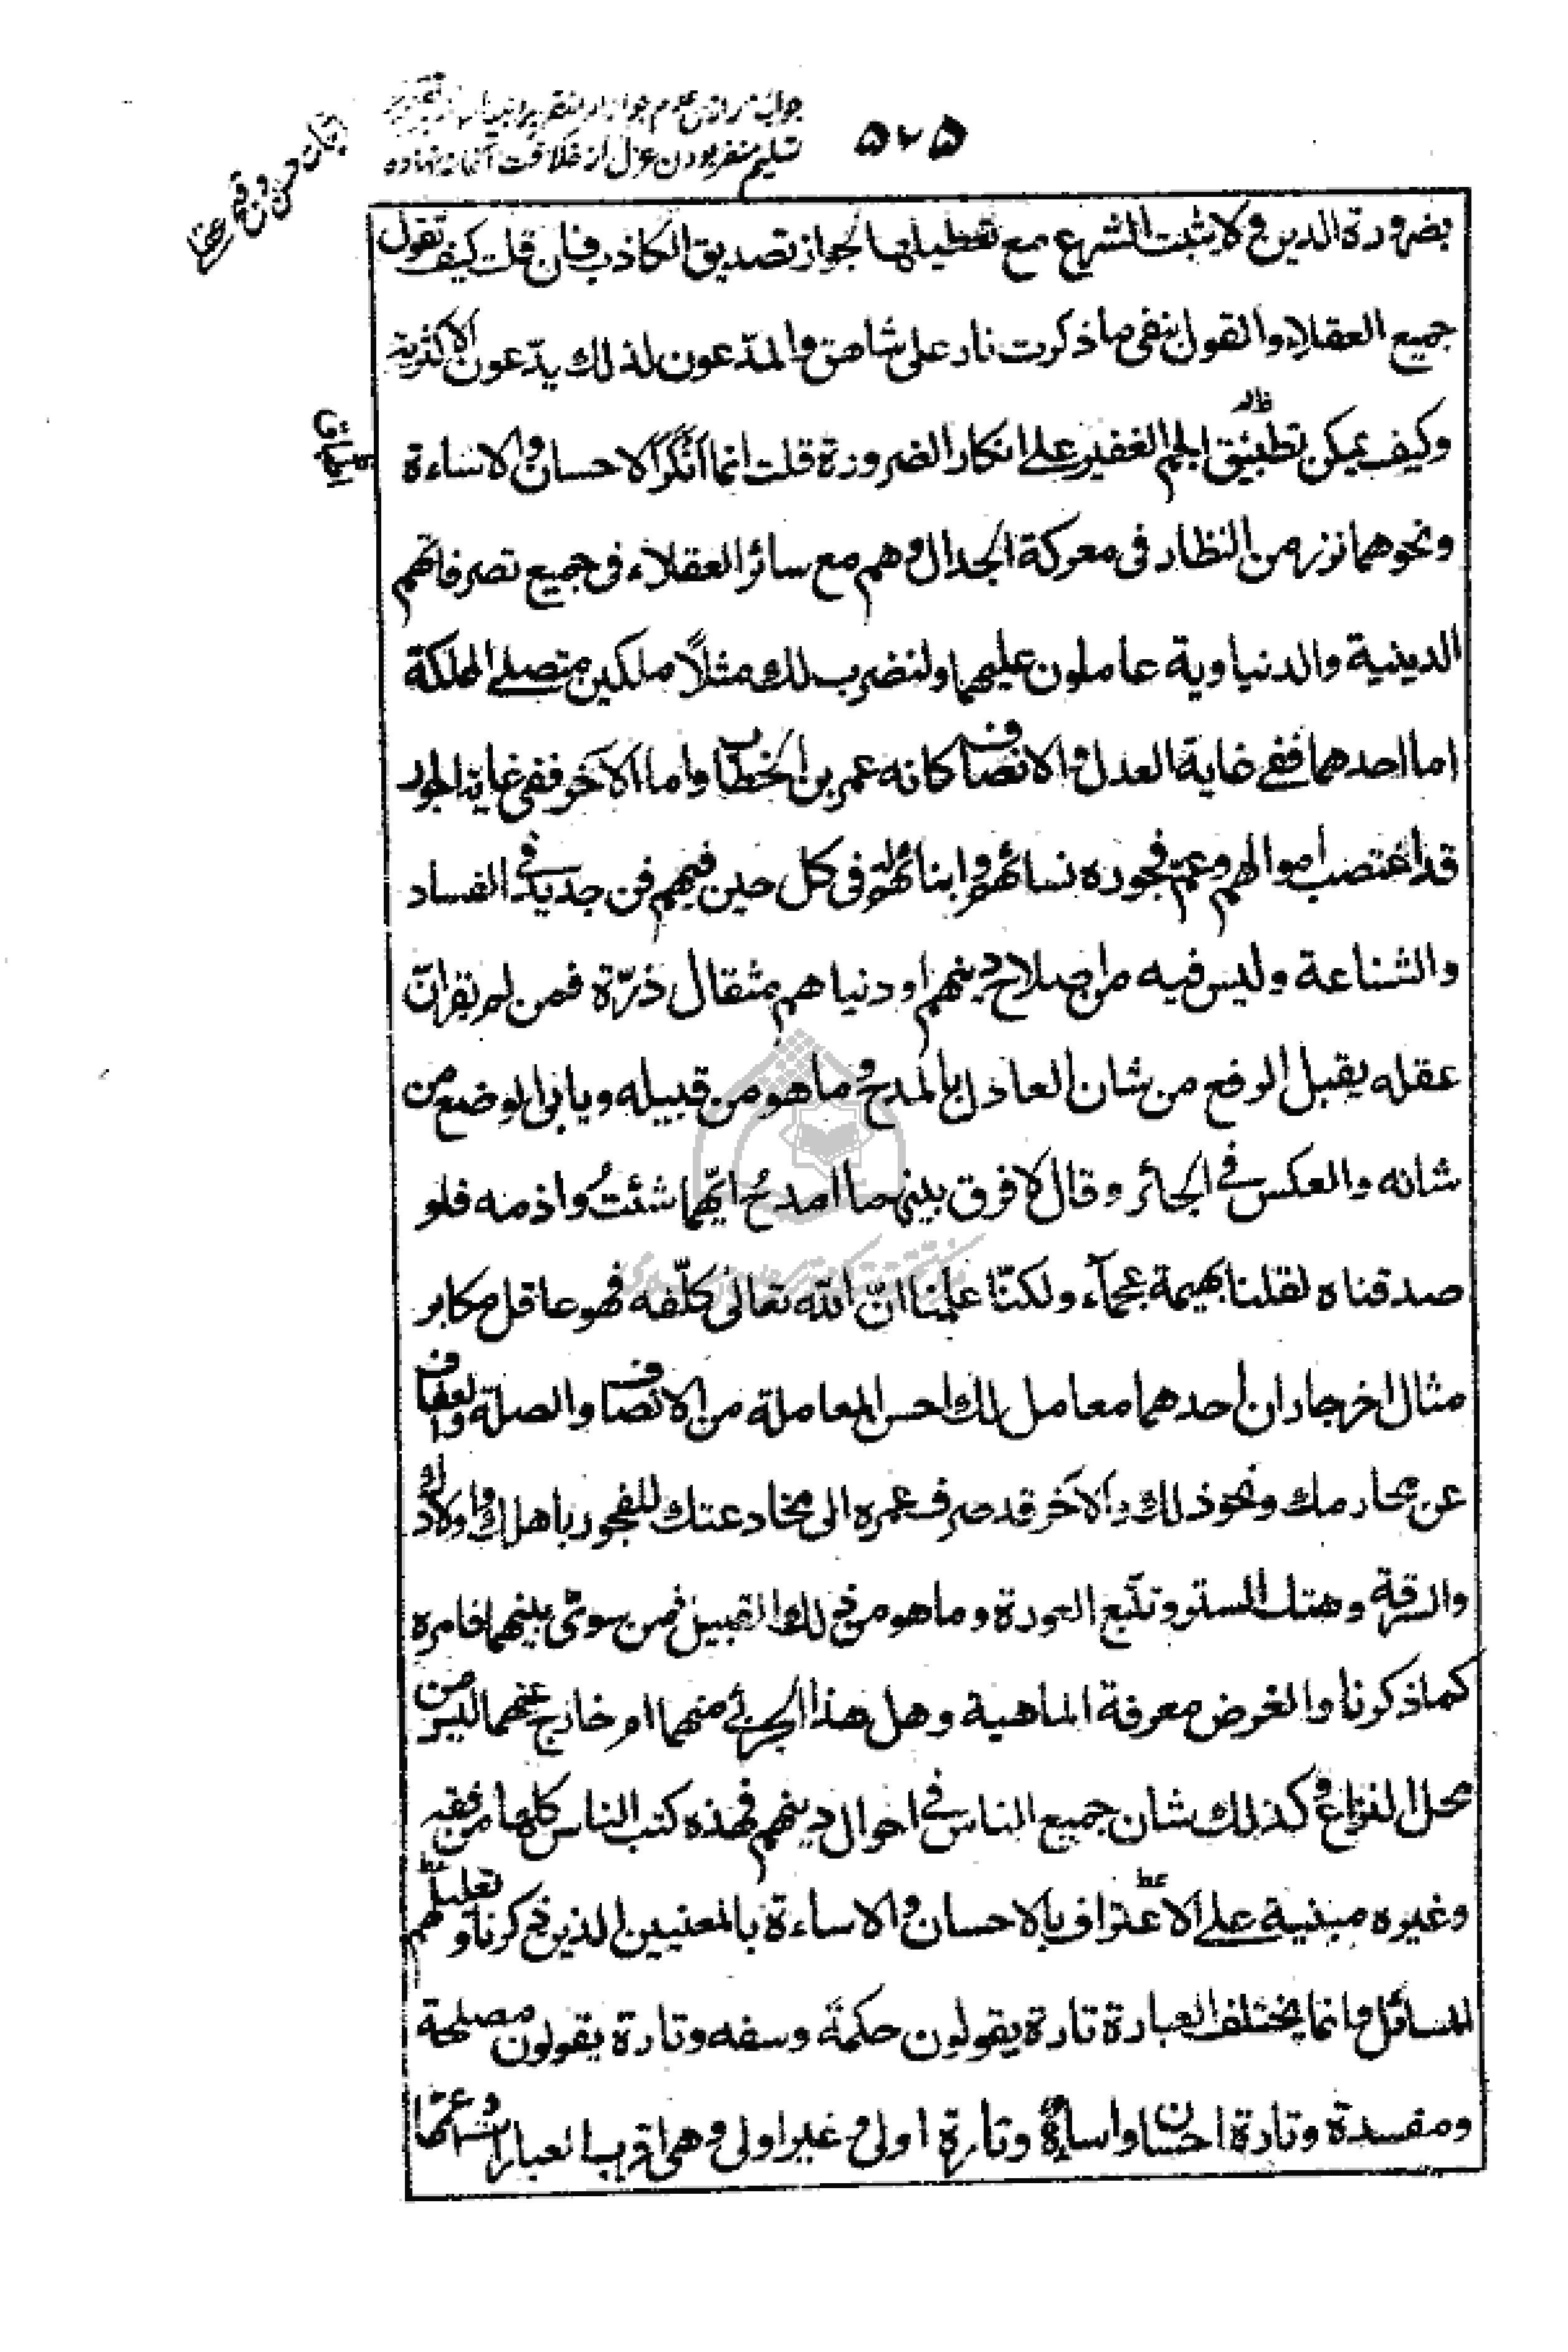 ۵۲۵
تسليم منفر بودن عزل از خلافت
اثبات حسن و قبح عقلى
بضرورة الدين و لا يثبت الشرع مع تعطيلها لجواز تصديق الكاذب فان قلت كيف تقول
جميع العقلاء والقول بنفى ما ذكرت نار على شاهق و المدّعون لذلك يدّعون الاكثرية
وكيف يمكن تطبيق الجم الغفير على انكار الضرورة قلت انما انكر الاحسان و الاساءة
اطباق
ونحوهما نزر من النظار فى معركة الجدال و هم مع سائر العقلاء فى جميع تصرفاتهم
الدينية والدنياوية عاملون عليهما ولنضرب لك مثلًا ملكين متصلى المملكة
اما احدهما ففى غاية العدل و الانصاف كانه عمر بن الخطاب واما الآخر ففى غاية الجور
قد اغتصب اموالهم وعم فجوره نساءهم و ابناءهم فى كل حين فيهم فن جديد فى الفساد
والشناعة وليس فيه من اصلاح دينهم او دنياهم مثقال ذرّة فمن لم يقر انّ
عقله يقبل الرفع من شان العادل بالمدح و ما هو من قبيله ويابى الوضع من
شانه والعكس فى الجائر وقال لا فرق بينهما امدحُ ايّهما شئتُ واذمه فلو
صدقناه لقلنا بهيمة عجماء ولكنّا علمنا انّ الله تعالى كلّفه فهو عاقل مكابر
مثال اخر جاران احدهما معامل لك احسن المعاملة من الانصاف والصلة والعفاف
عن محارمك ونحو ذلك و الآخر قد صرف عمره الى مخادعتك للفجور باهلك و اولادك
والسرقة وهتك الستر وتتبع العورة وما هو من ذلك القبيل فمن سوّى بينهما فامره
كما ذكرنا والغرض معرفة الماهية وهل هذا الجزئى منهما او خارج عنهما ليس من
محل النزاع و كذلك شان جميع الناس فى احوال دينهم فهذه كتب الناس كلها من فقه
وغيره مبنية على الاعتراف بالاحسان و الاساءة بالمعنيين الذين ذكرنا و تعليلهم
المسائل وانما يختلف العبارة تارة يقولون حكمة وسفه وتارة يقولون مصلحة
ومفسدة وتارة احسان واساءة وتارة اولى و غير اولى و هى اقرب العبارات و اعمها